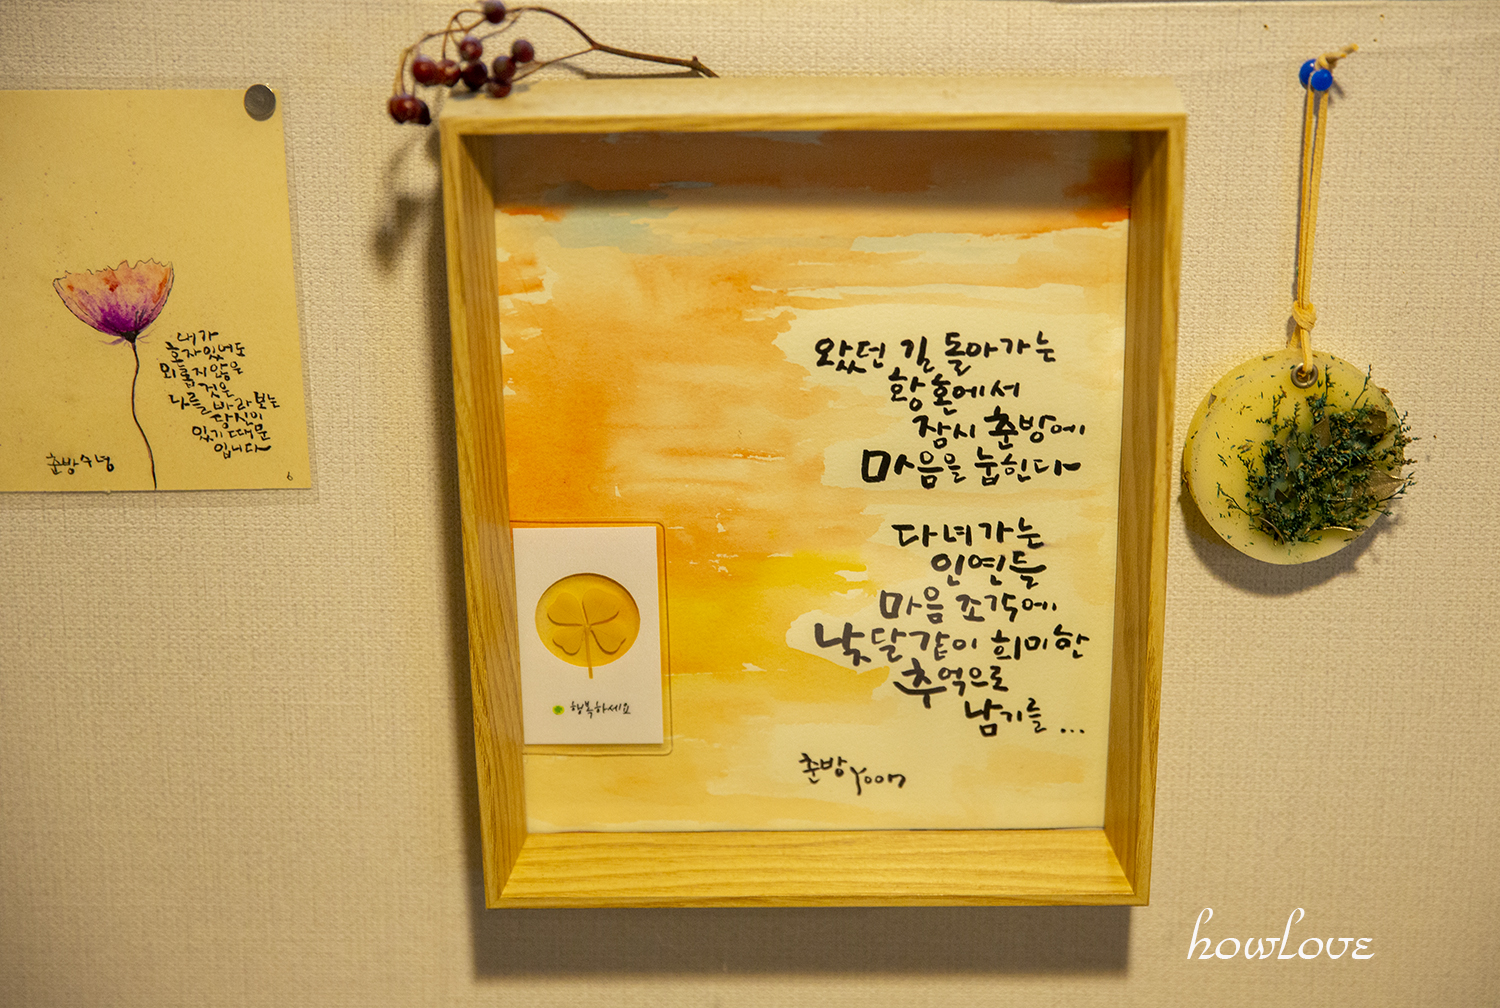 내가
혼자 있어도
외롭지 않은
것은
나를 바라보는
당신이
있기 때문
입니다
춘방수녕
6
왔던 길 돌아가는
황혼에서
잠시 춘방에
마음을 눕힌다
다녀가는
인연들
마음 조각에
낮달같이 희미한
추억으로
남기를 ...
춘방 Yoon
행복하세요
howLove